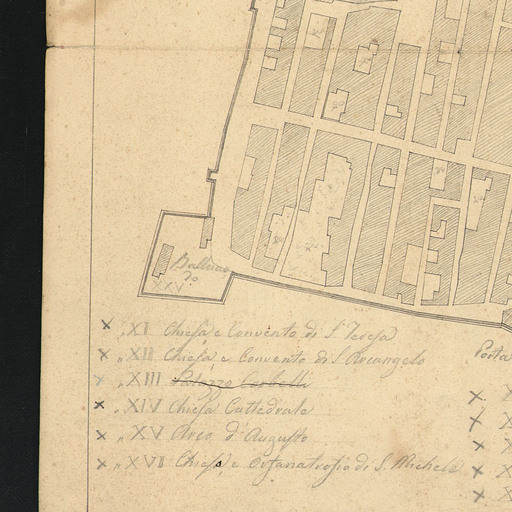 XXV
× „ XI Chiesa e Convento di S. Teresa
× „ XII Chiesa e Convento di S. Arcangelo
× „ XIII Palazzo
× „ XIV Chiesa Cattedrale
× „ XV Arco d'Augusto
× „ XVI Chiesa e Orfanatrofio di S. Michele
Porta
× X
× X
× X
× X
× X